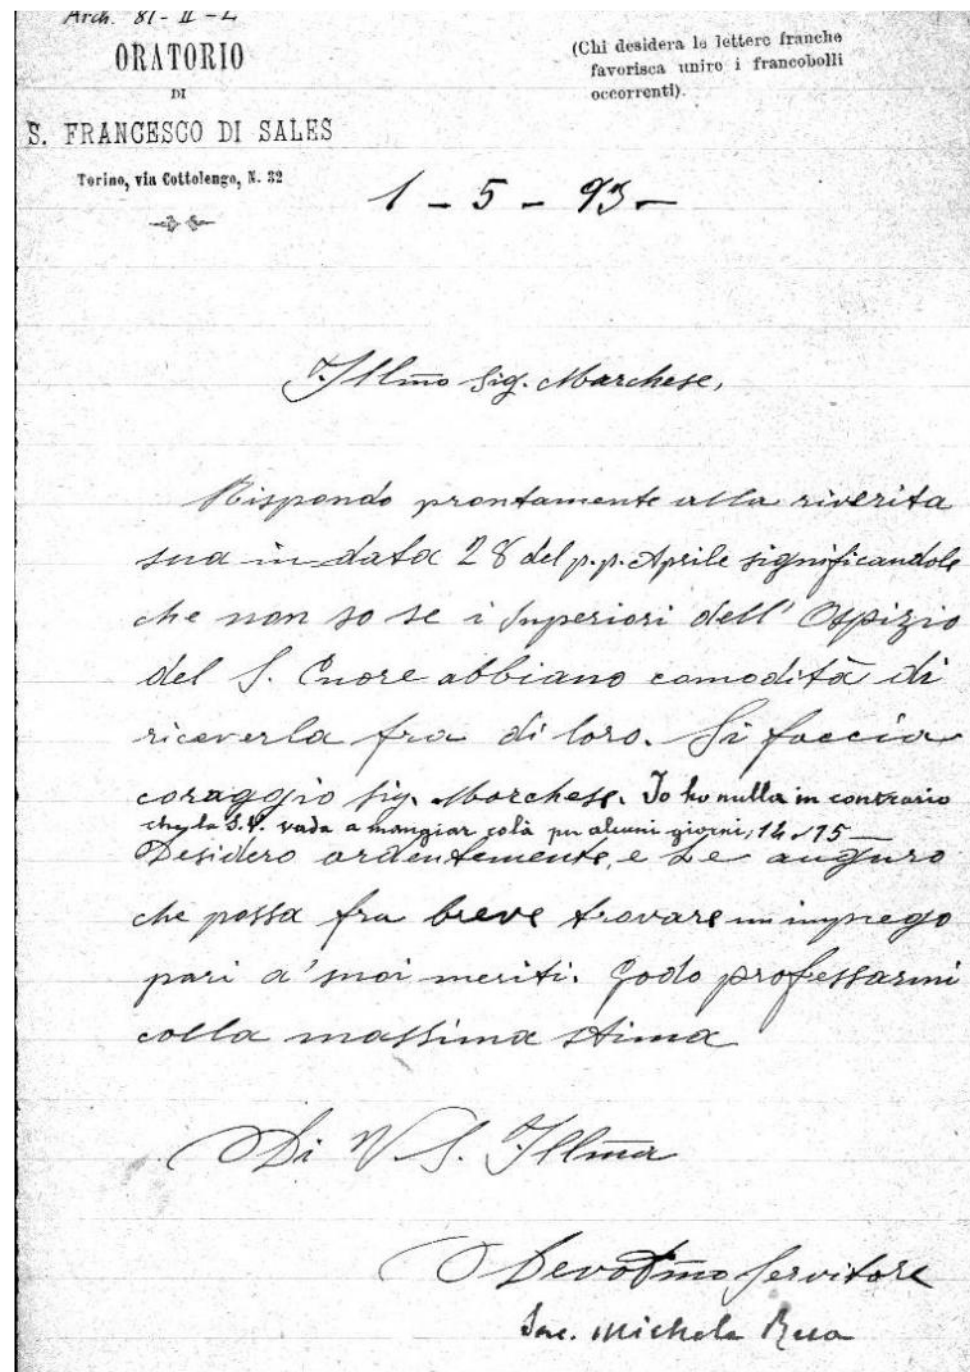 Arch. 81 - II - 2
ORATORIO
DI
S. FRANCESCO DI SALES
Torino, via Cottolengo, N. 32
(Chi desidera le lettere franche
favorisca unire i francobolli
occorrenti).
1 - 5 - 93 -
Illmo Sig. Marchese,
Rispondo prontamente alla riverita
sua in data 28 del p.p. Aprile significandole
che non so se i Superiori dell' Ospizio
del S. Cuore abbiano comodità di
riceverla fra di loro. Si faccia
coraggio Sig. Marchese. Io ho nulla in contrario
che la S.V. vada a mangiar colà per alcuni giorni, 14 15 —
Desidero ardentemente, e Le auguro
che possa fra breve trovare un impiego
pari a' suoi meriti. Godo professarmi
colla massima stima
Di V. S. Illma
Devotmo Servitore
Sac. Michele Rua